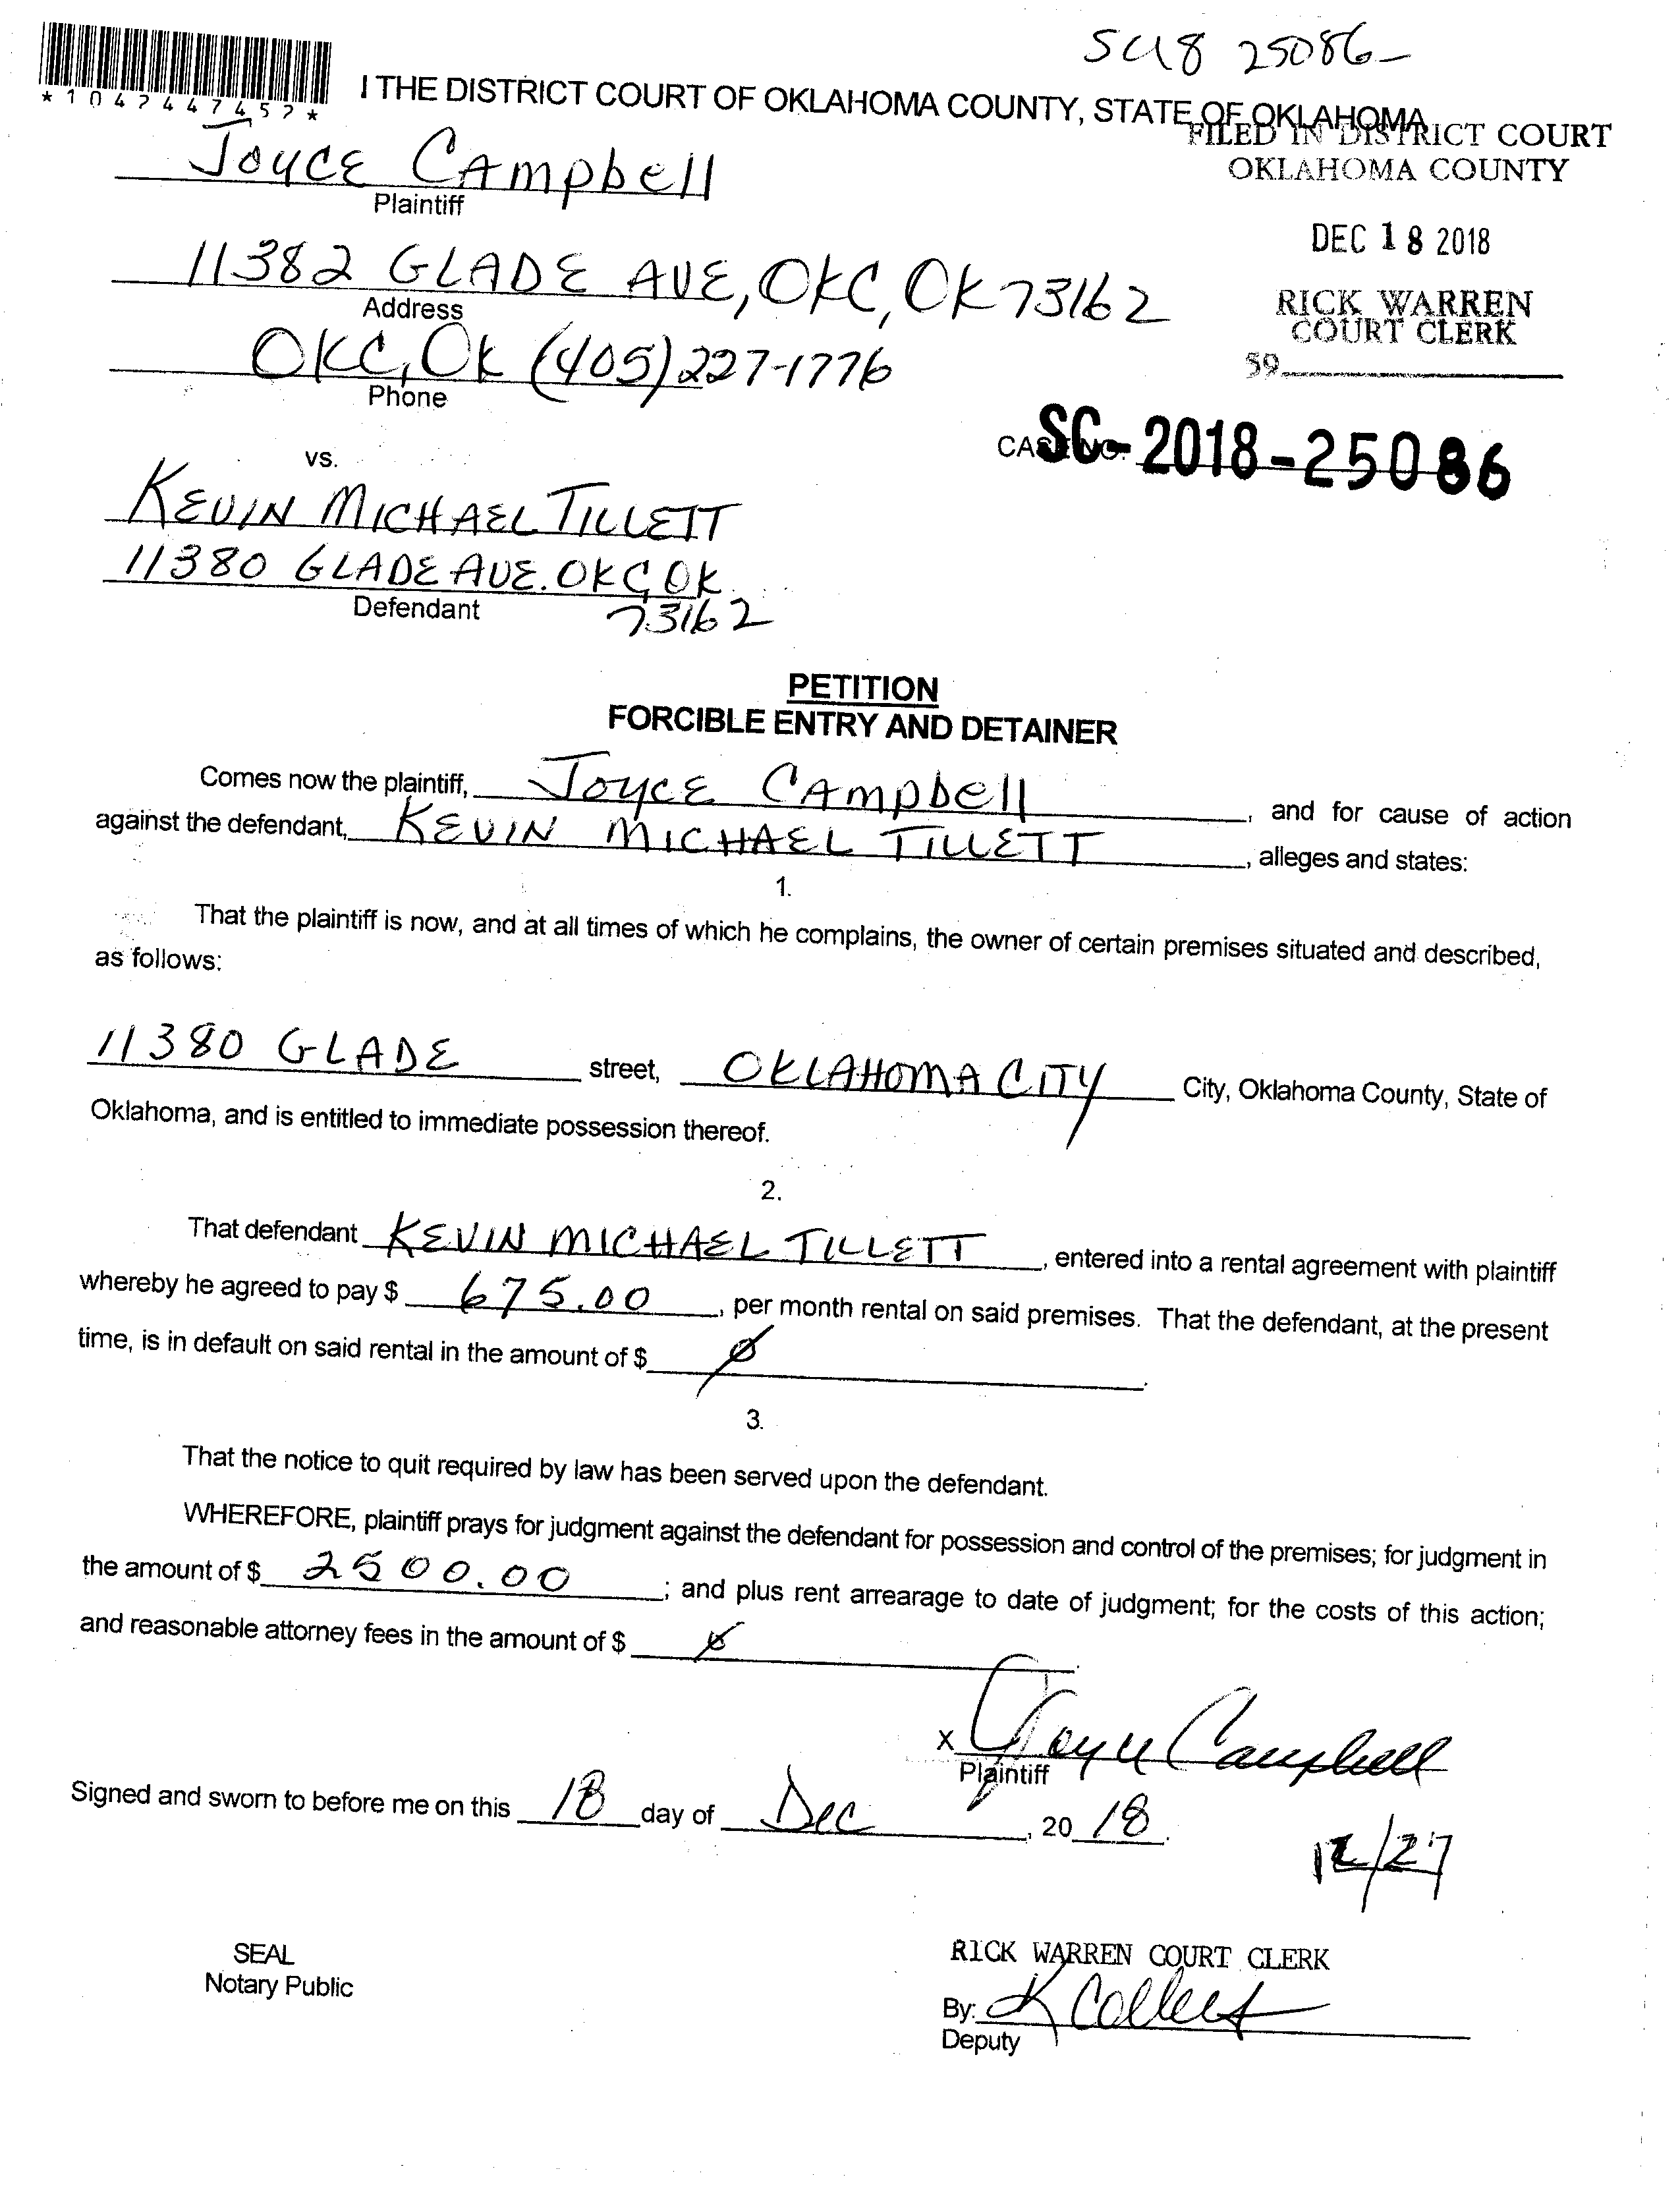 SC18 25086
*1042447452*
I THE DISTRICT COURT OF OKLAHOMA COUNTY, STATE OF OKLAHOMA
FILED IN DISTRICT COURT
OKLAHOMA COUNTY
Joyce Campbell
Plaintiff
DEC 18 2018
11382 GLADE AVE, OKC, OK 73162
Address
RICK WARREN
COURT CLERK
OKC, OK (405) 227-1776
Phone
59
CASE NO. SC-2018-25086
vs.
KEVIN MICHAEL TILLETT
11380 GLADE AVE. OKC, OK
73162
Defendant
PETITION
FORCIBLE ENTRY AND DETAINER
Comes now the plaintiff, Joyce Campbell, and for cause of action
against the defendant, KEVIN MICHAEL TILLETT, alleges and states:
1.
That the plaintiff is now, and at all times of which he complains, the owner of certain premises situated and described,
as follows:
11380 GLADE street, OKLAHOMA CITY City, Oklahoma County, State of
Oklahoma, and is entitled to immediate possession thereof.
2.
That defendant KEVIN MICHAEL TILLETT, entered into a rental agreement with plaintiff
whereby he agreed to pay $ 675.00, per month rental on said premises. That the defendant, at the present
time, is in default on said rental in the amount of $ Ø.
3.
That the notice to quit required by law has been served upon the defendant.
WHEREFORE, plaintiff prays for judgment against the defendant for possession and control of the premises; for judgment in
the amount of $ 2500.00; and plus rent arrearage to date of judgment; for the costs of this action;
and reasonable attorney fees in the amount of $ Ø.
X Joyce Campbell
Plaintiff
Signed and sworn to before me on this 18 day of Dec, 2018.
12/27
SEAL
Notary Public
RICK WARREN COURT CLERK
By: K
Deputy